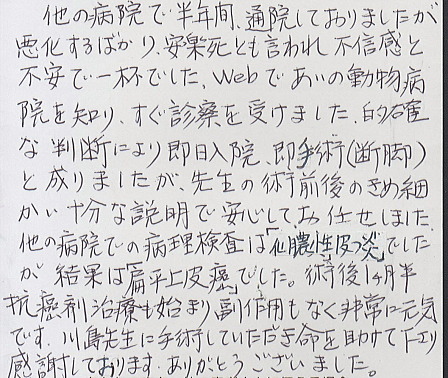 他の病院で半年間、通院しておりましたが
悪化するばかり、安楽死とも言われ不信感と
不安で一杯でした。Webであいの動物病
院を知り、すぐ診察を受けました。的確
な判断により即日入院、即手術(断脚)
と成りましたが、先生の術前後のきめ細
かい十分な説明で安心してお任せしました。
他の病院での病理検査は「化膿性皮ふ炎」でした
が結果は「扁平上皮癌」でした。術後1ヶ月半
抗癌剤治療も始まり副作用もなく非常に元気
です。川島先生に手術していただき命を助けて下さり
感謝しております。ありがとうございました。